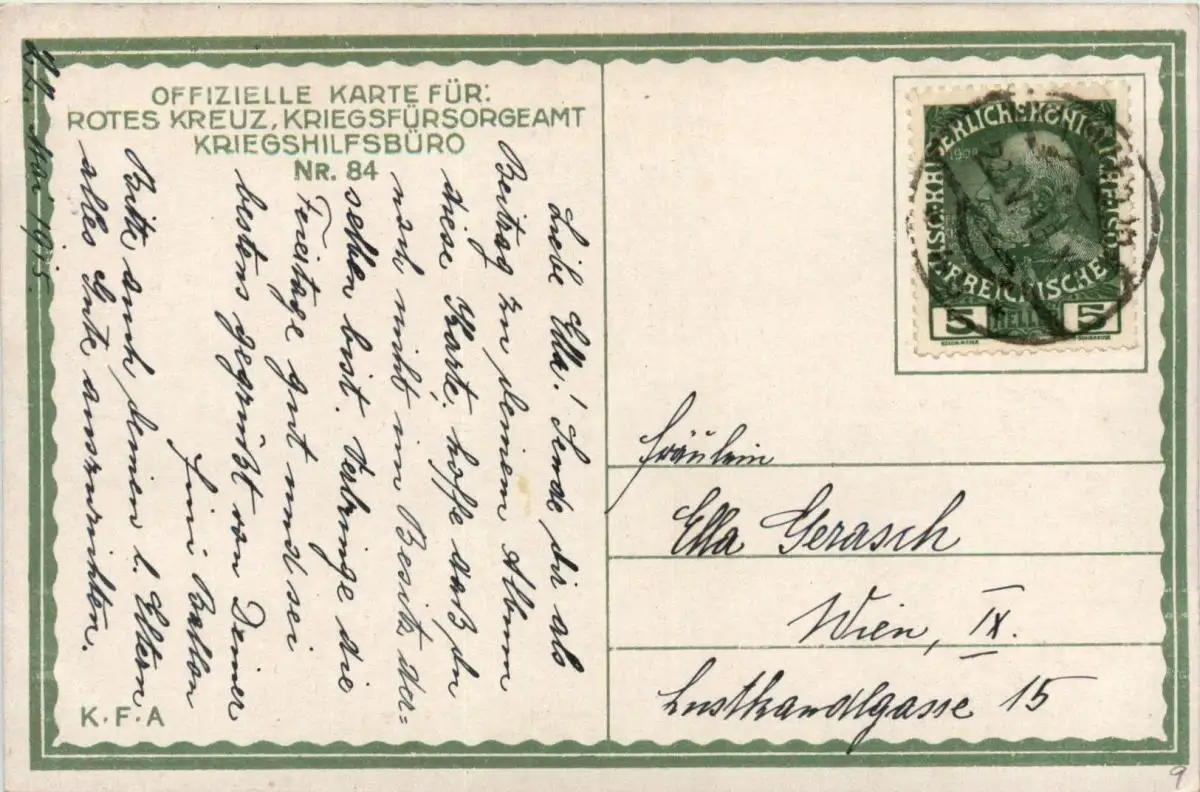 OFFIZIELLE KARTE FÜR:
ROTES KREUZ, KRIEGSFÜRSORGEAMT
KRIEGSHILFSBÜRO
NR. 84
Liebe Ella! Sende dir als
Beitrag zu deinem Album
diese Karte, hoffe daß du
noch nicht im Besitz der-
selben bist. Verbringe die
Feiertage gut und sei
bestens gegrüßt von Deiner
Bitte auch deinen l. Eltern
alles Gute auszurichten.
22. Mai 1915.
K·F·A
KAISERLICHE KÖNIGLICHE ÖSTERREICHISCHE
1908
5 HELLER 5
Fräulein
Ella Gerasch
Wien, IX.
Lustkandlgasse 15
9